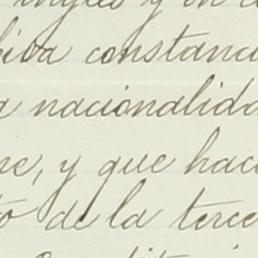 inglés y en
constanci
a nacionalida
re, y que hac
to de la terce